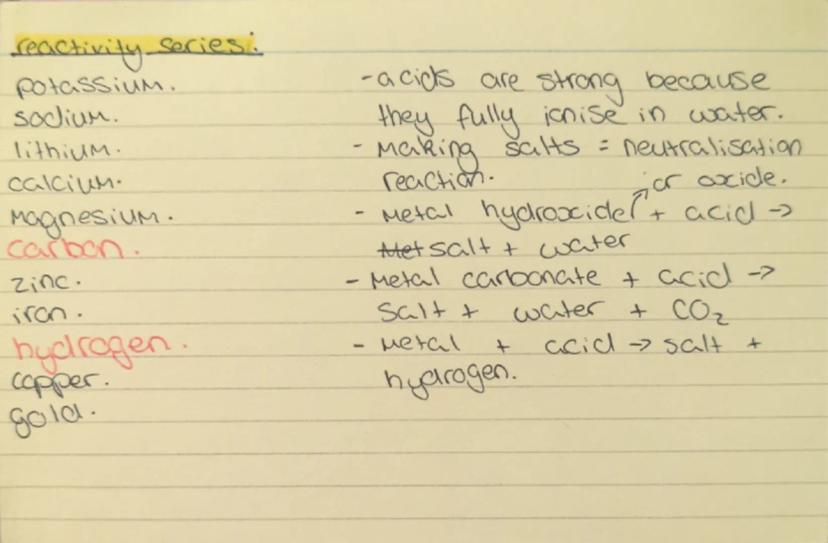 reactivity series:
potassium.
sodium.
lithium.
calcium.
magnesium.
carbon.
zinc.
iron.
hydrogen.
copper.
gold.
- acids are strong because
they fully ionise in water.
- making salts = neutralisation
reaction.
or oxide.
- metal hydroxide + acid ->
Met salt + water
- metal carbonate + acid ->
salt + water + CO₂
- metal + acid -> salt +
hydrogen.